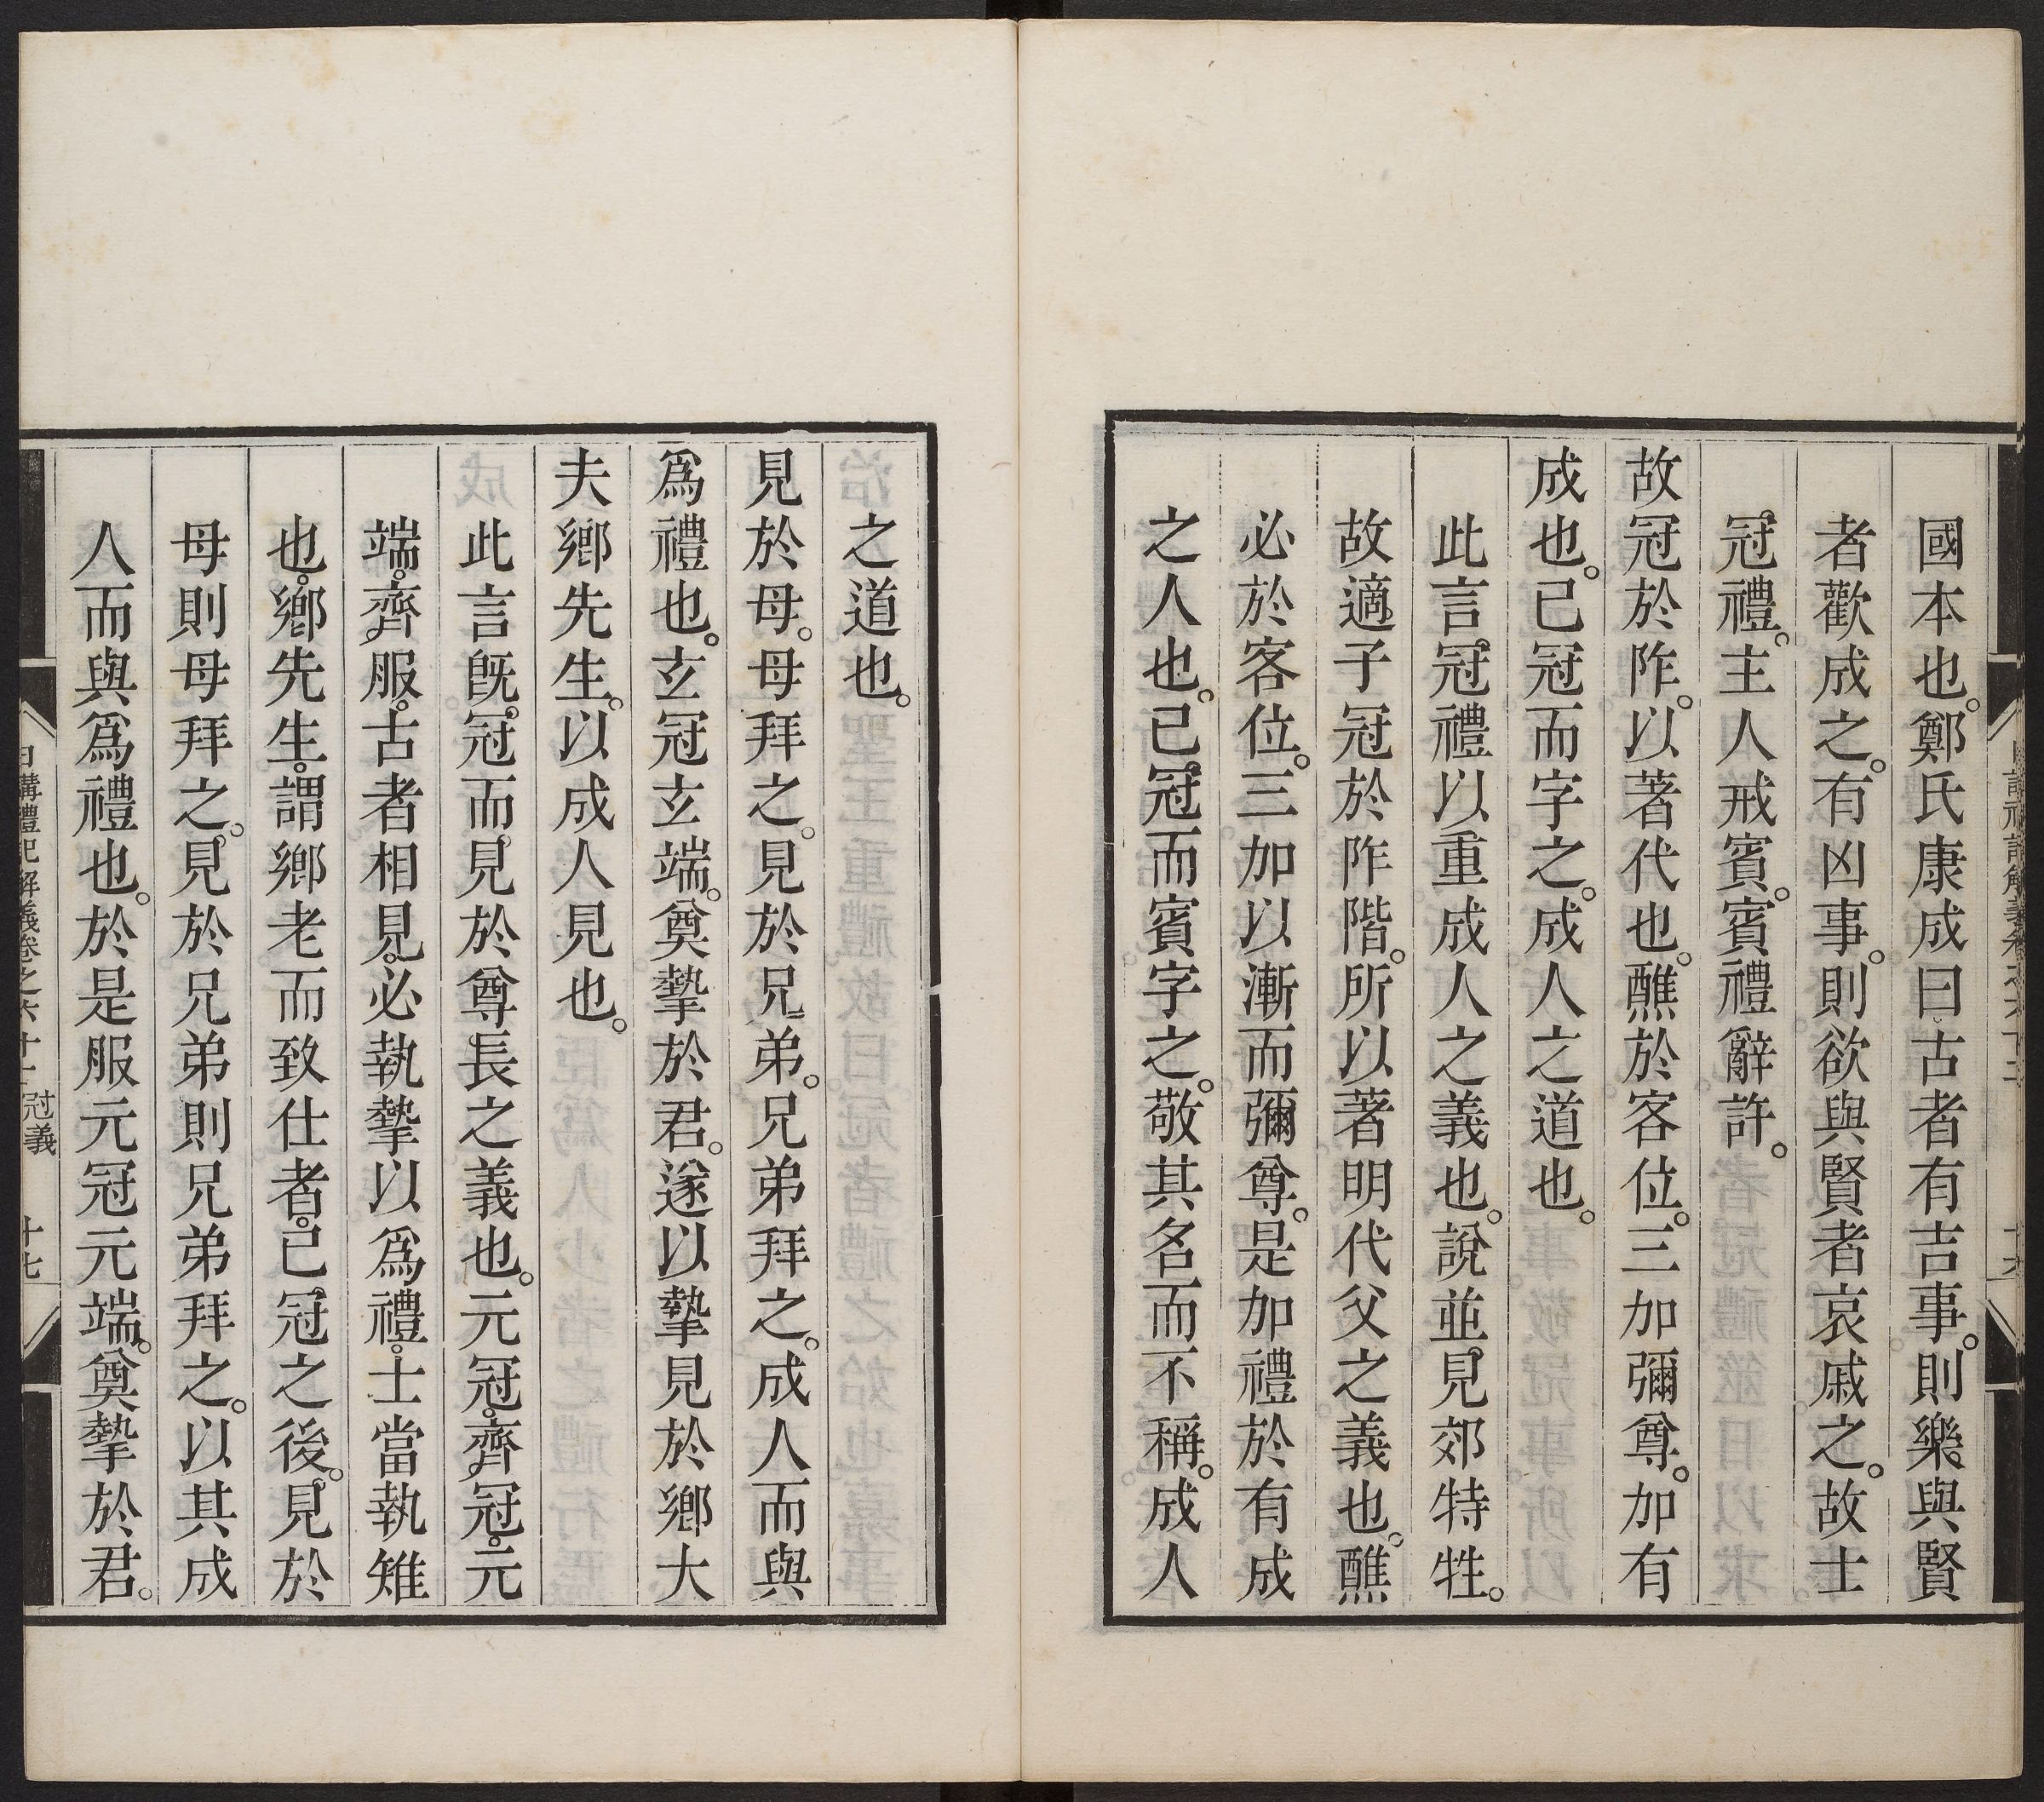 國本也。鄭氏康成曰古者有吉事。則樂與賢
者歡成之。有凶事。則欲與賢者哀戚之。故士
冠禮。主人戒賓。賓禮辭許。
故冠於阼。以著代也。醮於客位。三加彌尊。加有
成也。已冠而字之。成人之道也。
此言冠禮以重成人之義也。說並見郊特牲。
故適子冠於阼階。所以著明代父之義也。醮
必於客位。三加以漸而彌尊。是加禮於有成
之人也。已冠而賓字之。敬其名而不稱。成人
之道也。
見於母。母拜之。見於兄弟。兄弟拜之。成人而與
為禮也。玄冠玄端。奠摯於君。遂以摯見於鄉大
夫鄉先生。以成人見也。
此言既冠而見於尊長之義也。元冠。齊冠。元
端。齊服。古者相見。必執摯以為禮。士當執雉
也。鄉先生。謂鄉老而致仕者。已冠之後。見於
母則母拜之。見於兄弟則兄弟拜之。以其成
人而與為禮也。於是服元冠元端。奠摯於君。
日講禮記解義卷之六十二 冠義 十七